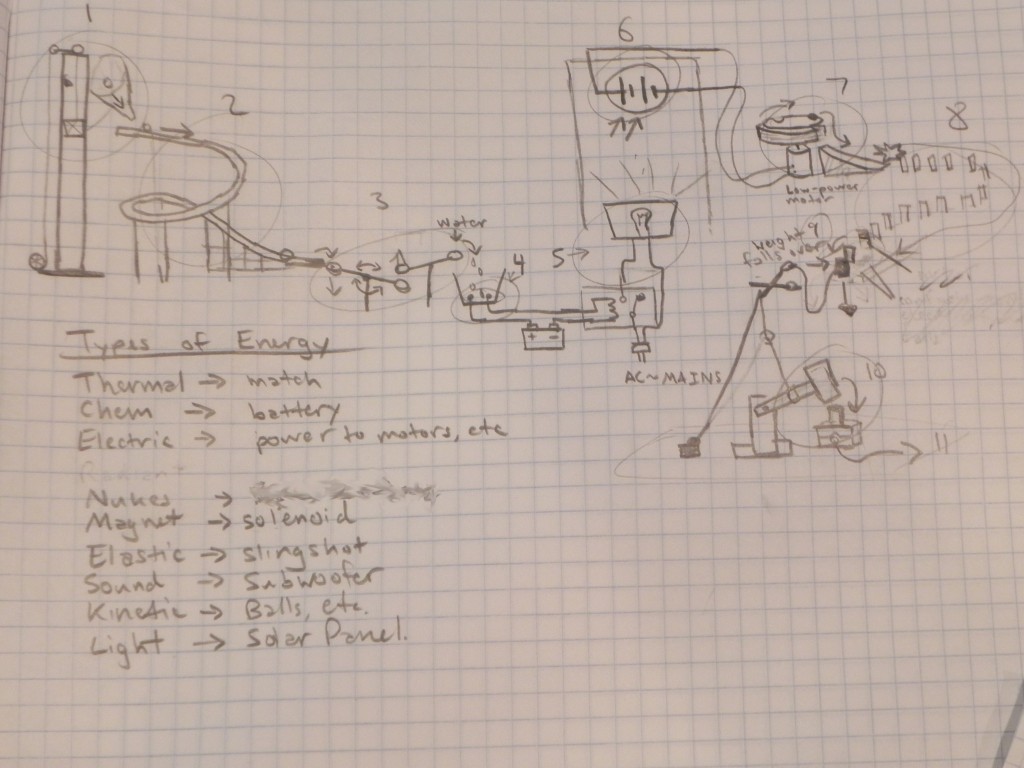 1
2
3
water
4
5
6
7
low-power
motor
8
weight
falls over
9
AC~MAINS
10
11
+ -
Types of Energy
Thermal → match
Chem → battery
Electric → power to motors, etc
Nukes →
Magnet → solenoid
Elastic → slingshot
Sound → Subwoofer
Kinetic → Balls, etc.
Light → Solar Panel.